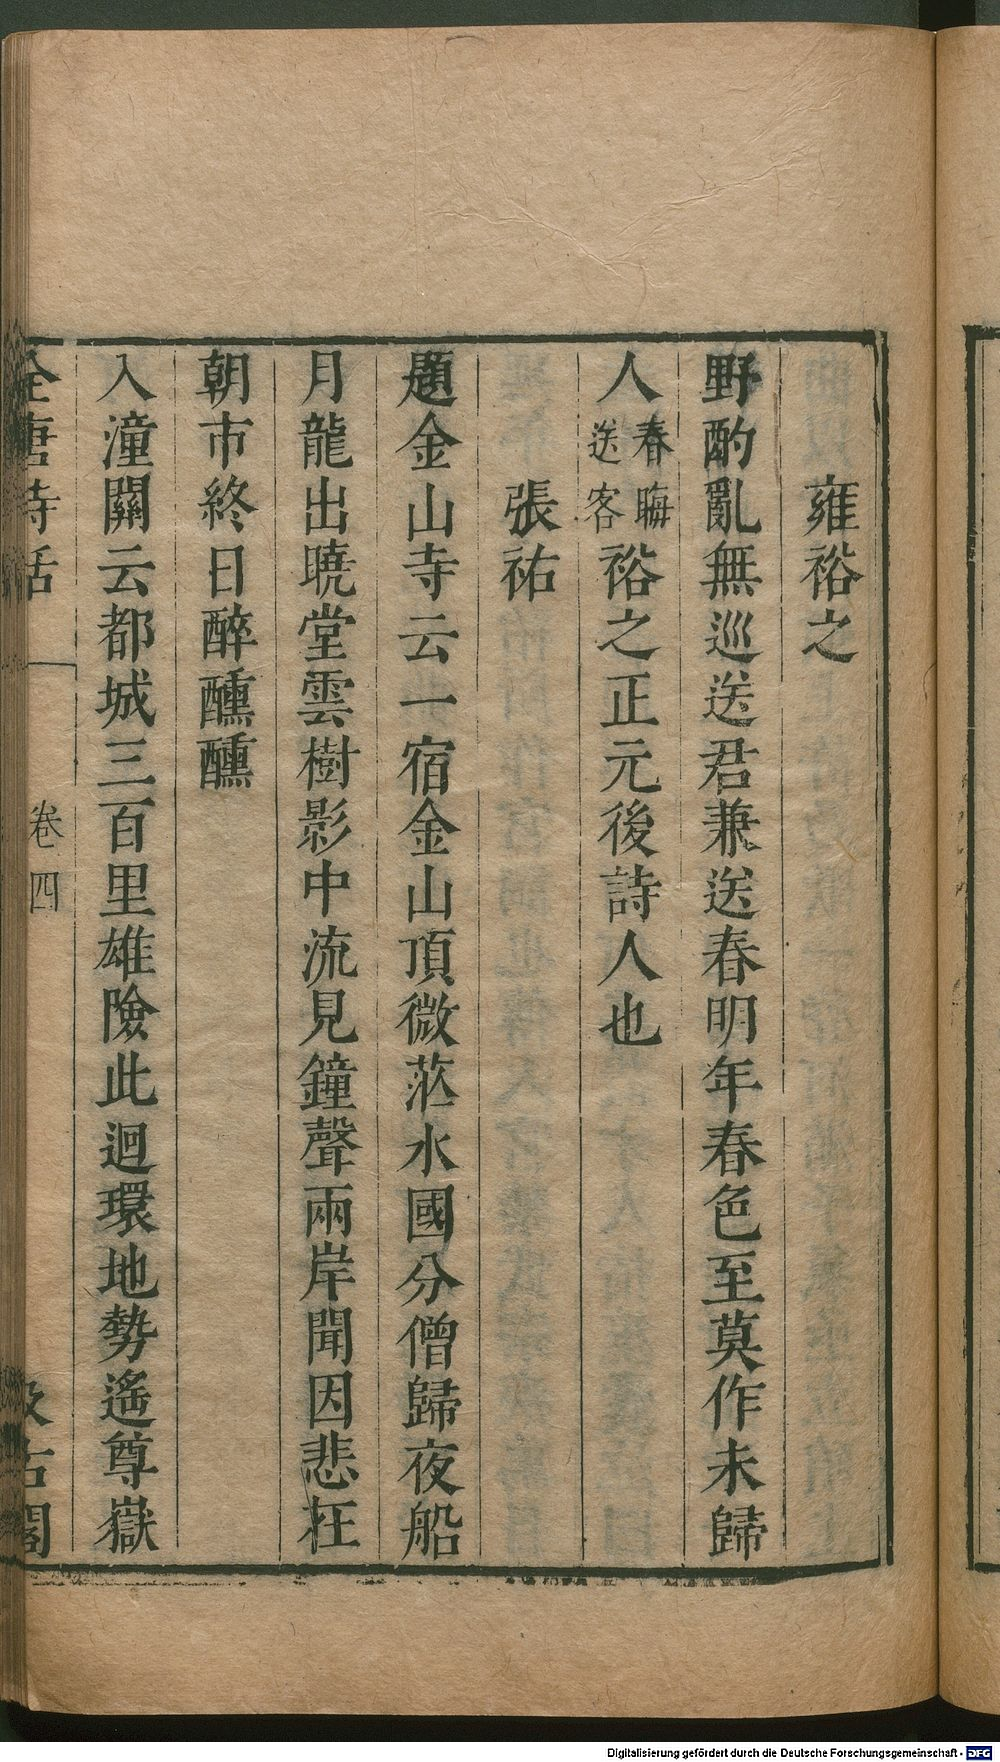 雍裕之
野酌亂無巡送君兼送春明年春色至莫作未歸
人春晦送客裕之正元後詩人也
張祐
題金山寺云一宿金山頂微茫水國分僧歸夜船
月龍出曉堂雲樹影中流見鐘聲兩岸聞因悲在
朝市終日醉醺醺
入潼關云都城三百里雄險此迴環地勢遙尊嶽
全唐詩話 卷四 汲古閣
Digitalisierung gefördert durch die Deutsche Forschungsgemeinschaft - DFG